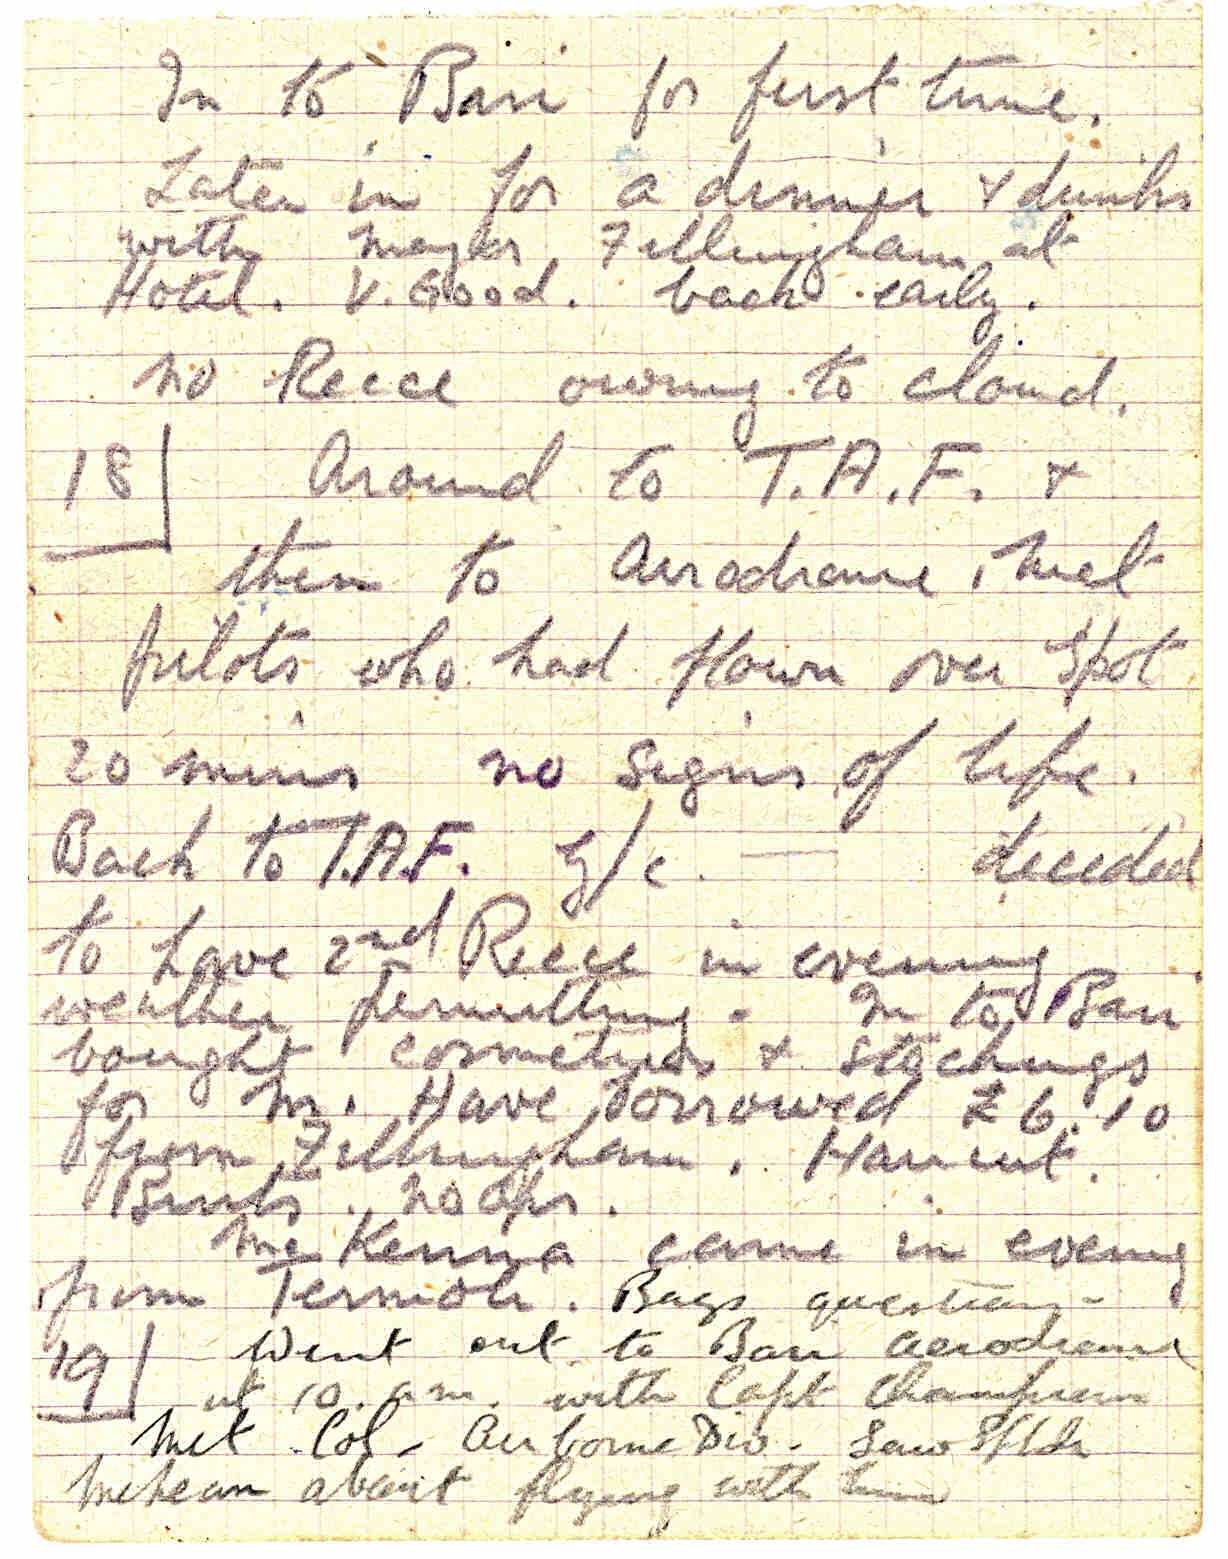 In to Bari for first time.
Later in for a dinner & drinks
with Major Fillingham at
Hotel. V. Good. back early.
no Recce owing to cloud.
18 Around to T.A.F. &
then to Aerodrome, met
pilots who had flown over spot
20 mins no signs of life.
Back to T.A.F. G/c. — decided
to have 2nd Recce in evening
weather permitting - In to Bari
bought cosmetics & stockings
for M. Have borrowed £6.10
from Fillingham. Haircut.
no Ops.
McKenna came in evening
from Termoli. Bags questions -
19 Went out to Bari aerodrome
at 10. a.m. with Capt Champion
Met Col - Airborne Div - Saw S/Ldr
McLean about flying with him